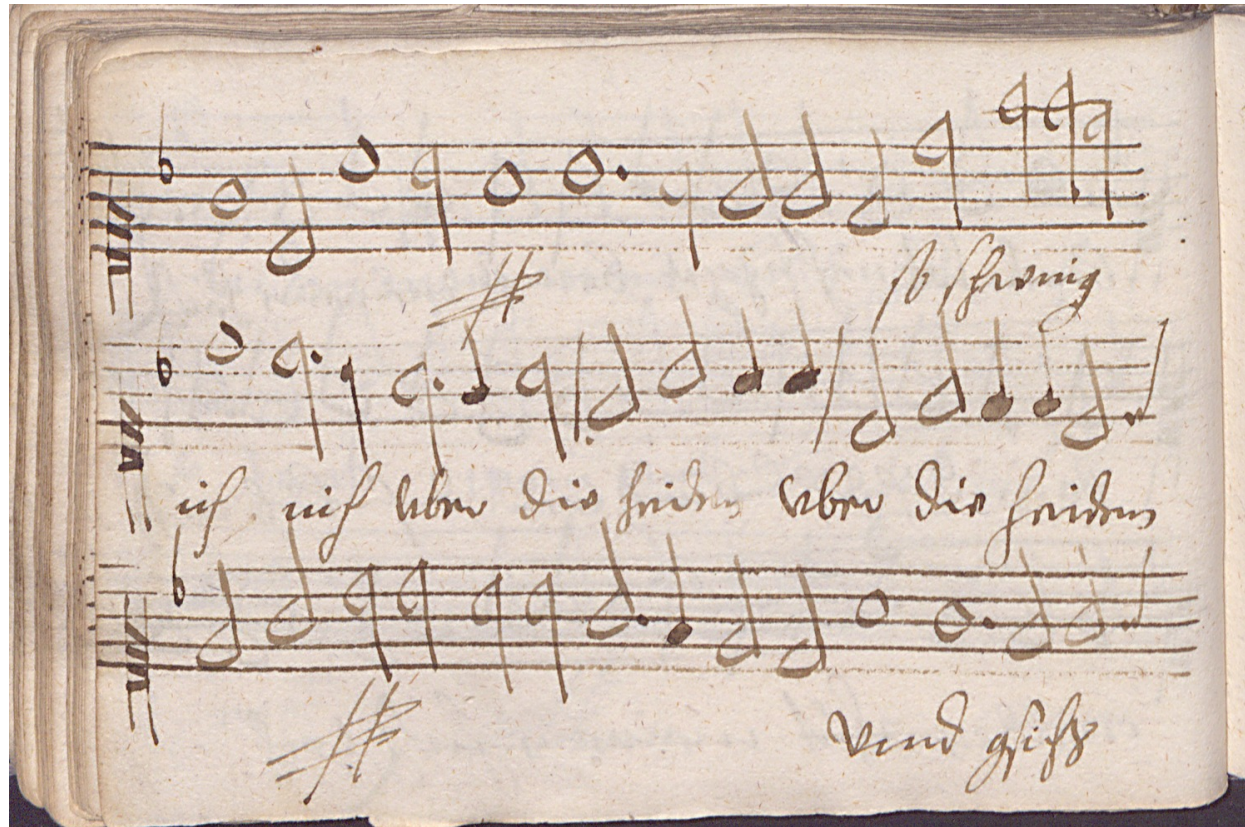 so schwing
ich mich vber die heiden vber die heiden
vnnd